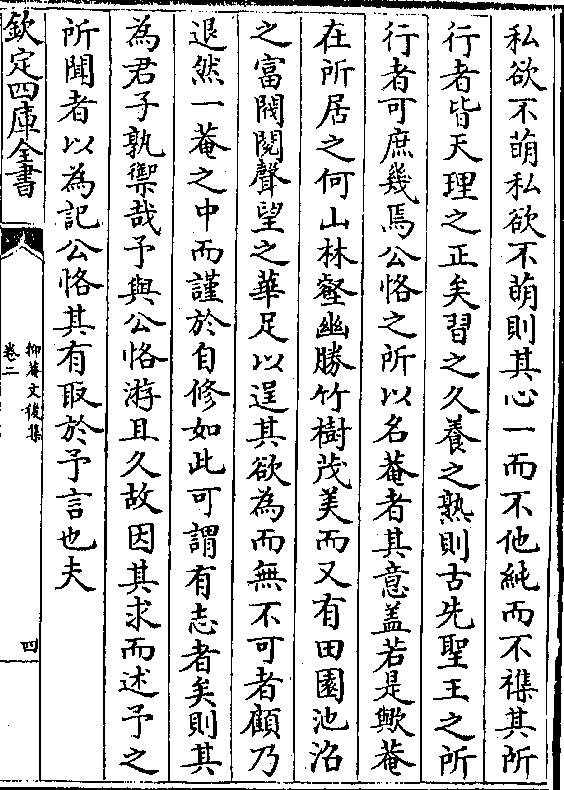 私欲不萌私欲不萌則其心一而不他純而不襍其所
行者皆天理之正矣習之久養之熟則古先聖王之所
行者可庶幾焉公恪之所以名菴者其意盖若是歟菴
在所居之何山林壑幽勝竹樹茂美而又有田園池沼
之富閥閱聲望之華足以逞其欲為而無不可者顧乃
退然一菴之中而謹於自修如此可謂有志者矣則其
為君子孰禦哉予與公恪游且久故因其求而述予之
所聞者以為記公恪其有取於予言也夫
欽定四庫全書
抑菴文後集
卷二
四